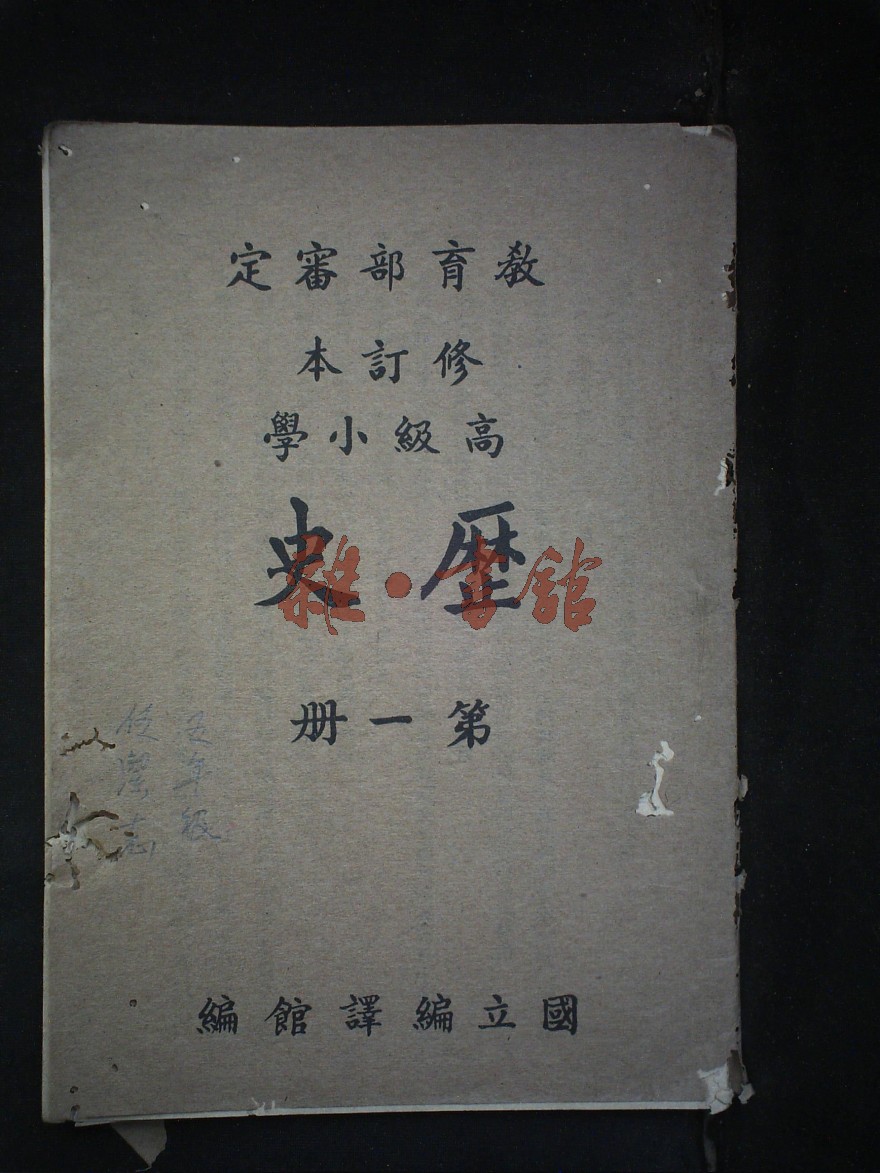 教育部審定
修訂本
高級小學
歷史
第一册
五年級
國立編譯館編
雜·書館